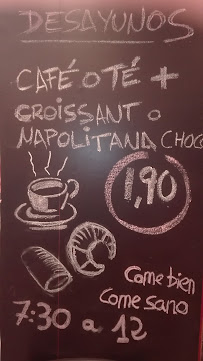 DESAYUNOS
CAFÉ O TÉ +
CROISSANT O
NAPOLITANA CHOCO
1,90
Come bien
Come sano
7:30 a 12